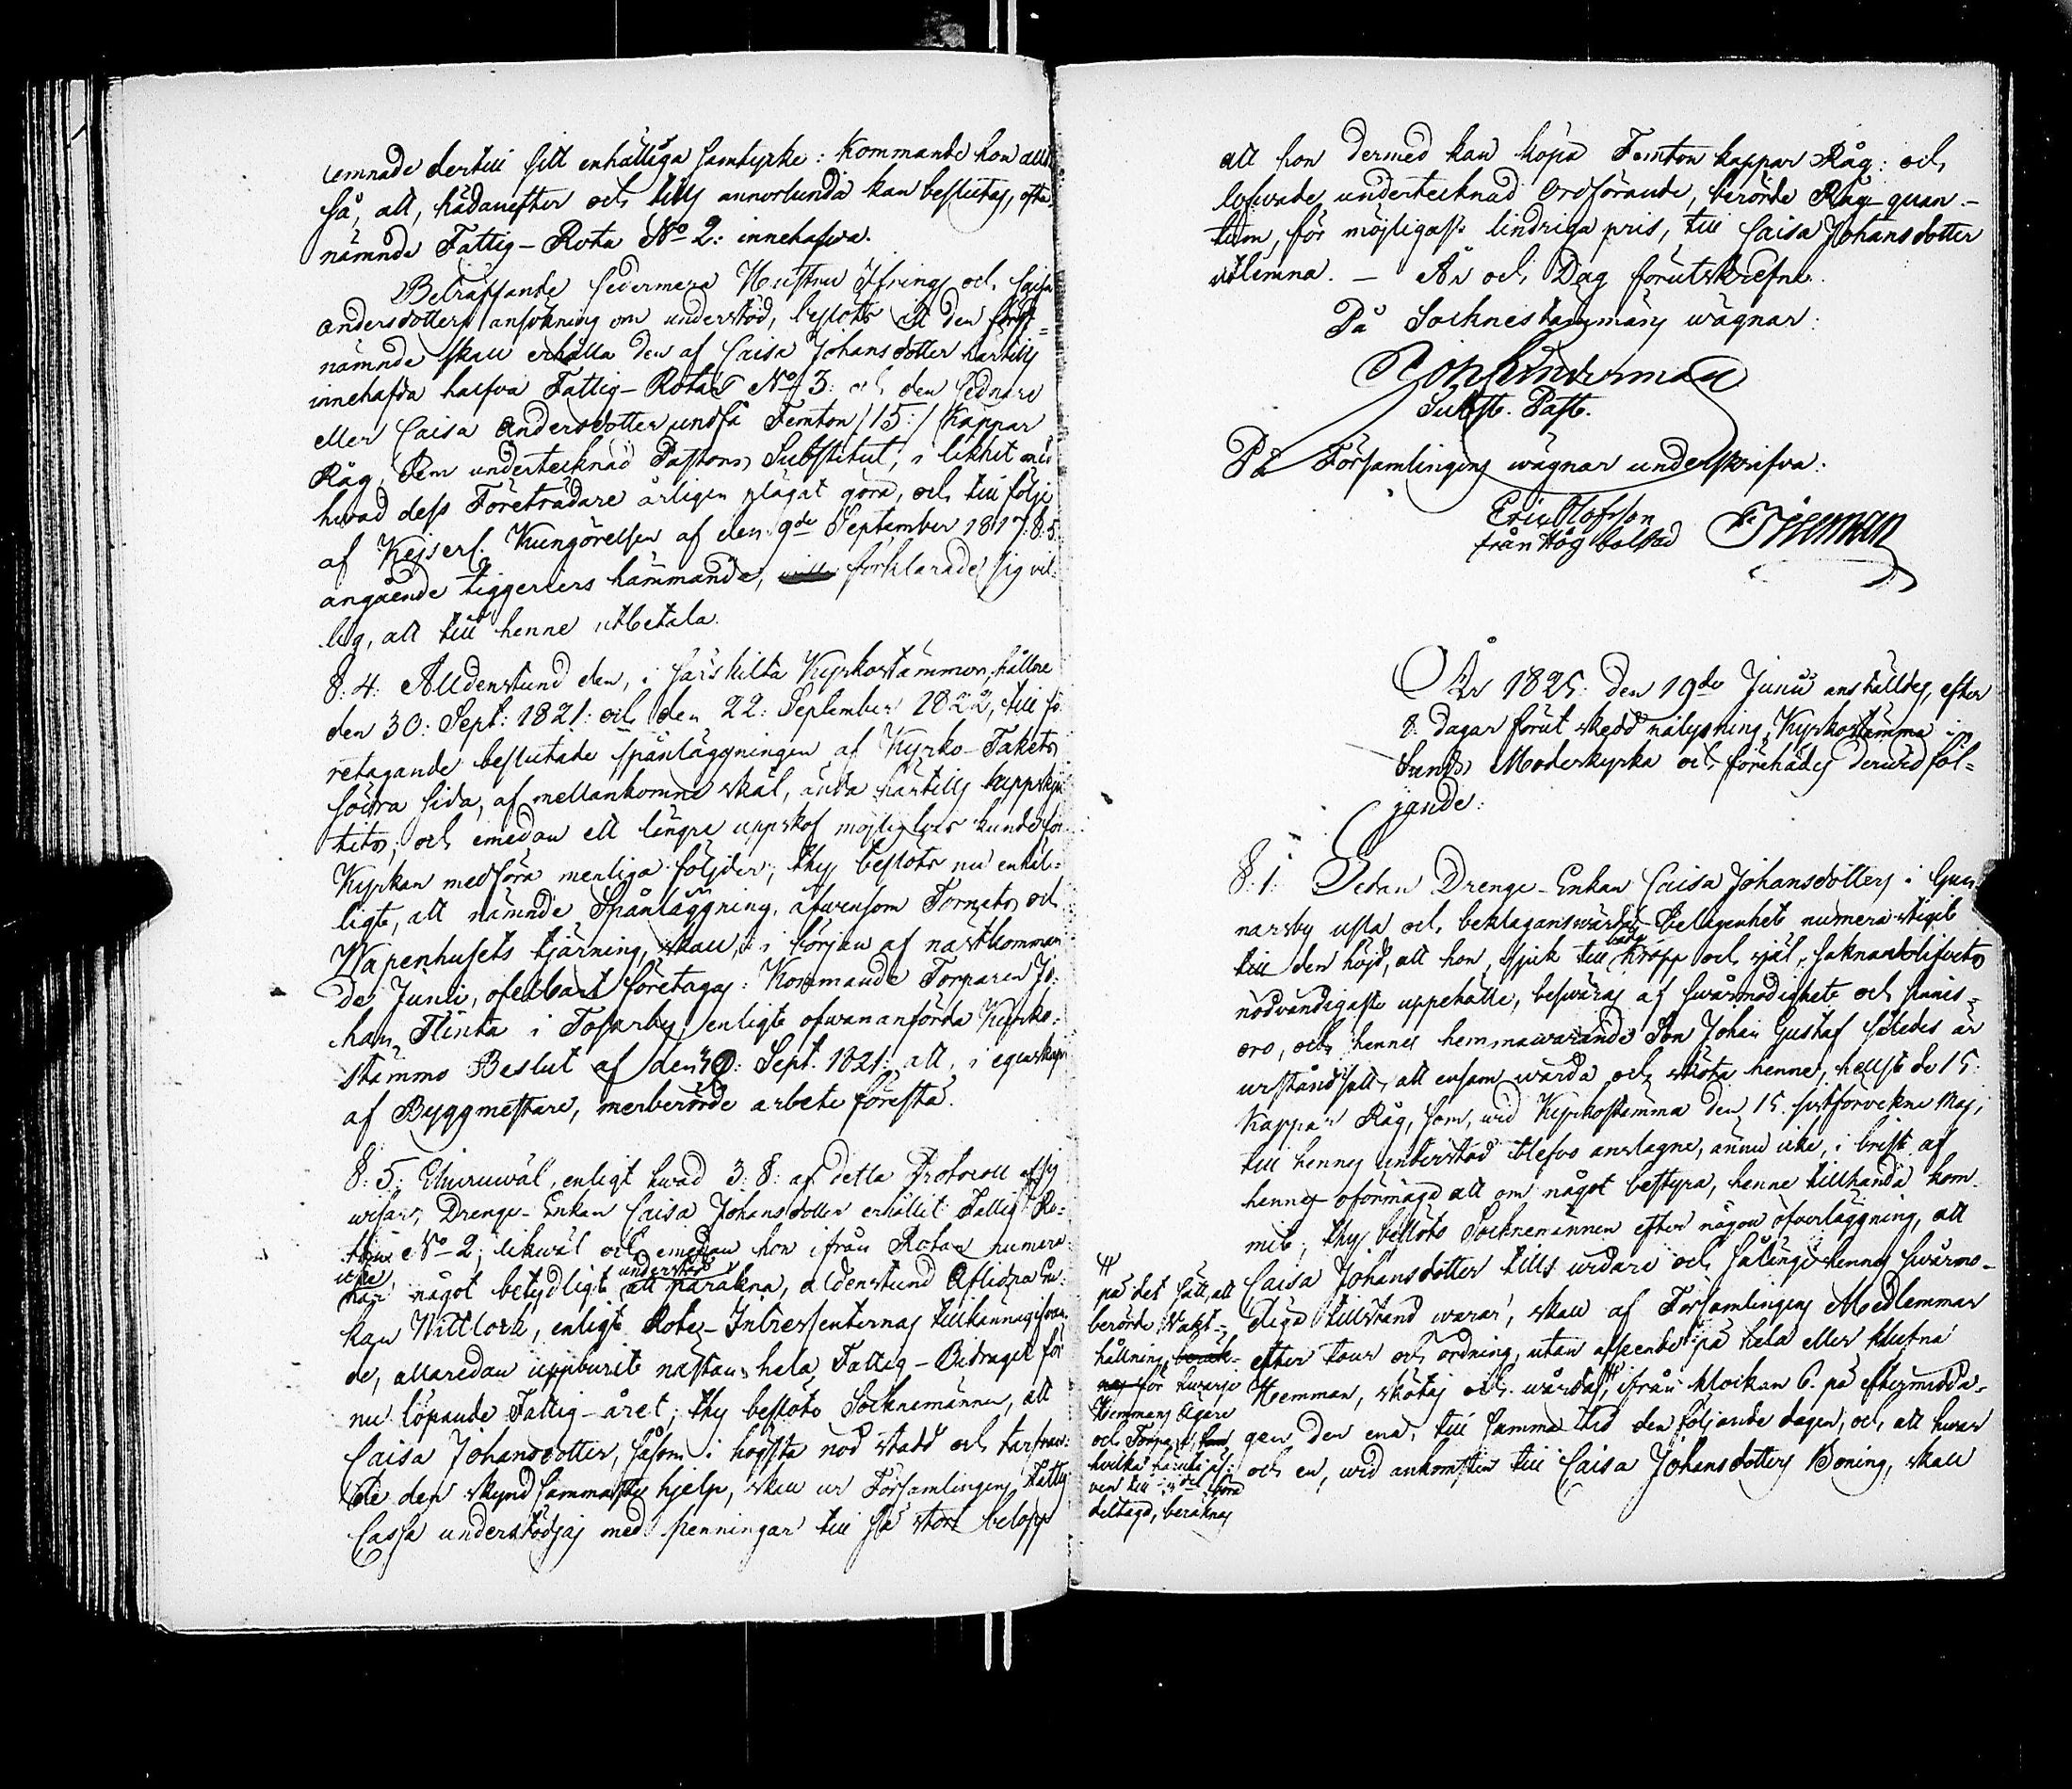 lemnade dertill sitt enhälliga samtycke: Kommande hon allt
så, att, hädanefter och tills annorlunda kan beslutas, ofta
nämnde Fattig-Rota No 2: innehafva.
Beträffande sedermera Hustru Ifrings och Caisa
Andersdotters ansökning om understöd, beslöts att den först-
nämnde skall erhålla den af Caisa Johansdotter härtills
innehafda halfva Fattig-Rotas No 3: och den sednare
eller Caisa Andersdotter undfå Femton /15:/ Kappar
Råg, dem undertecknad Pastors Substitut, i likhet med
hvad dess Företrädare årligen plägat göra, och till följe
af Kejserl. Kungörelsen af den 9de September 1817. §. 5.
angående tiggeriers hämmande, förklarade sig vil-
lig, att till henne utbetala.
§. 4: Alldenstund den, i särskilta Kyrkostämmor, hållne
den 30: Sept: 1821: och den 22: September 1822, till fö-
retagande beslutade spånläggningen af Kyrko-Takets
södra sida, af mellankomne skäl, ända härtills uppskju-
tits; och emedan ett längre uppskof möjligtvis kunde för
Kyrkan medföra menliga följder; thy beslöts nu enhäl-
ligt, att nämnde Spånläggning, äfvensom Tornets och
Wapenhusets tjärning, skall, i början af nästkomman
de Junii, ofelbart företagas: Kommande Torparen Jo-
han Flinta i Tosarby, enligt ofwananförda Kyrko-
stämmo Beslut af den 30: Sept. 1821: att, i egenskap
af Byggmestare, merberörde arbete förestå.
§. 5: Ehuruwäl, enligt hwad 3. §: af detta Protocoll sig
utvisar, Drenge-Enkan Caisa Johansdotter erhållit Fattig Ro-
tan No 2; likwäl och emedan hon ifrån Rotan numera
icke har något betydligt understöd att påräkna, aldenstund Aflidna En-
kan Wittlock, enligt Rote-Intressenternas tillkännagifwan-
de, allaredan uppburit nästan hela Fattig-Bidraget för
nu löpande Fattig-året; thy beslöts Socknemännen, att
Caisa Johansdotter, såsom i högsta nöd stadd och tarfwan-
de den skyndsammaste hjelp, skall ur Församlingens Fattig
Cassa understödjas med penningar till så stort belopp
att hon dermed kan köpa Femton kappar Råg: och
lofwade undertecknad Ordförande, berörde Råg-quan-
tum, för möjligaste lindriga pris, till Caisa Johansdotter
utlemna. — År och Dag förutskrefne.
På Socknestämmans wägnar:
Joh Linderman
Subst. Past.
På Församlingens wägnar underskrifva:
Eric Olofsson
från Högbolstad
År 1825: den 19de Junii anställdes, efter
8. dagar förut skedd pålysning, Kyrkostämma i
Sunds Moderkyrka och förehades dervid föl-
jande:
§. 1: Sedan Drenge-Enkan Caisa Johansdotters i Gun-
narsby usla och beklagansvärda belägenhet numera stigit
till den höjd, att hon, sjuk till både kropp och själ, saknande lifvets
nödvändigaste uppehälle, besväras af swårmodighet och sinnes-
oro, och hennes hemmawarande Son Johan Gustaf således är
urståndsatt, att ensam wårda och sköta henne, helst de 15
Kappar Råg, som, wid Kyrkostämma den 15. sistförvekne Maj,
till hennes understöd blefvo anslagne, ännu icke, i brist af
hennes oförmåga att om något bestyra, henne tillhanda kom-
mit; thy beslöts Socknemännen efter någon öfverläggning, att
Caisa Johansdotter tills widare och så länge hennes swårmo-
diga tillstånd warar, skall af Församlingens Medlemmar
efter tour och ordning, utan afseende på hela eller klufna
Hemman, skötas och wårdas, ifrån klockan 6. på eftermidda-
gen den ena, till samma tid den följande dagen, och att hwar
och en, wid ankomsten till Caisa Johansdotters Boning, skall
på det sätt, att
berörde Vakt-
hållning
för hvarje
Hemmans Egare
och Torpare,
hvilka
deltaga, beräknas